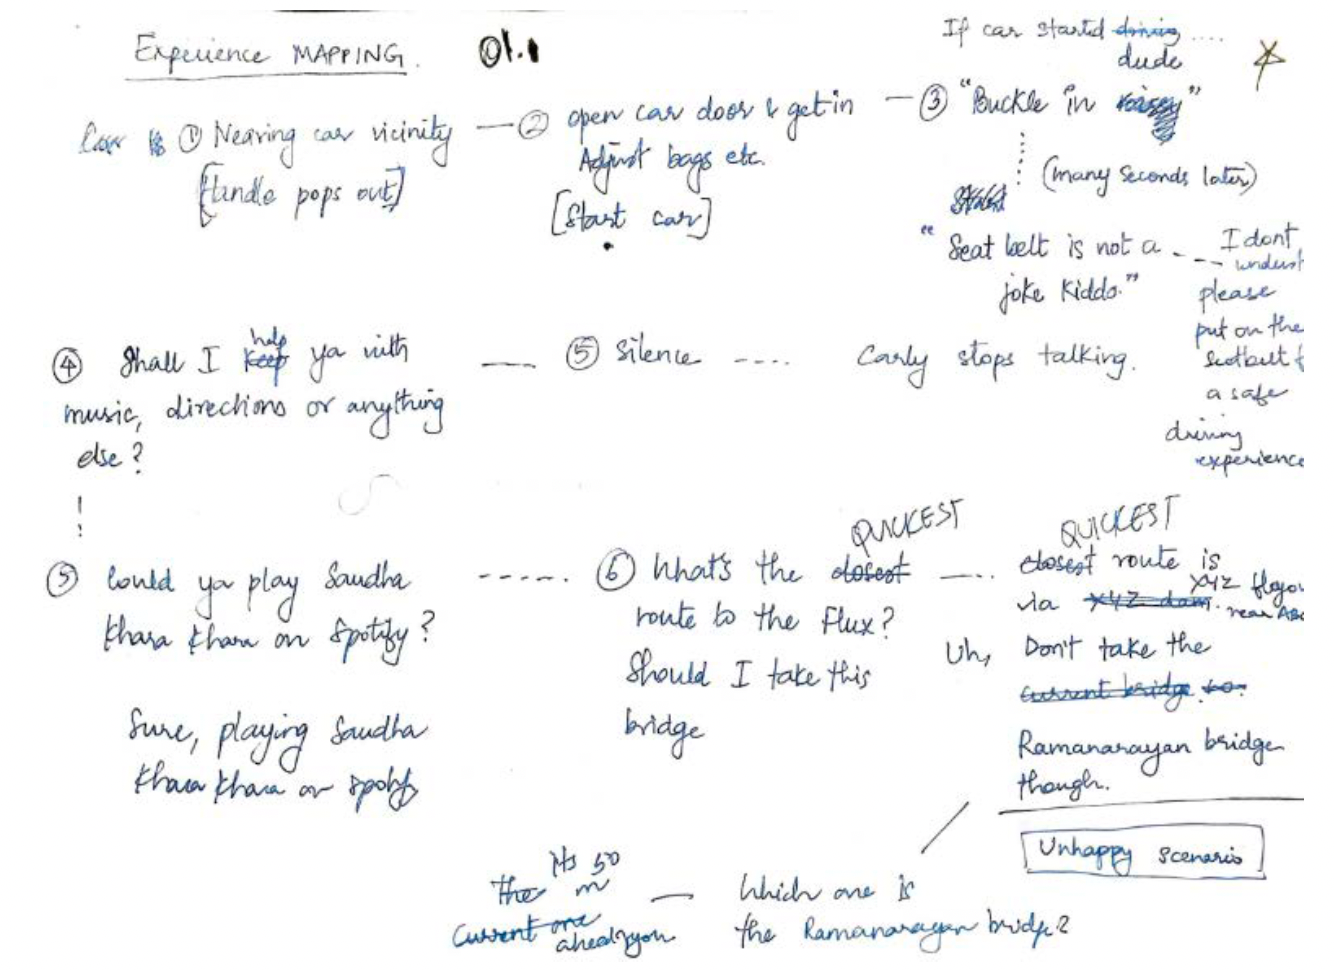 Experience MAPPING. 01.1
If car started driving ....
dude
① Nearing car vicinity
[Handle pops out]
② open car door & get in
Adjust bags etc.
[Start car]
③ "Buckle in"
(many seconds later)
"Seat belt is not a
joke kiddo."
I dont
underst
please
put on the
seatbelt f
a safe
driving
experience
④ Shall I keep help ya with
music, directions or anything
else?
⑤ Silence ---- Carly stops talking.
⑤ Could ya play Saudha
Khara Khara on Spotify?
Sure, playing Saudha
Khara Khara on Spotify
QUICKEST
⑥ What's the closest
route to the Flux?
Should I take this
bridge
QUICKEST
closest route is
via XYZ dam. XYZ flyov
near ABC
Uh, Don't take the
current bridge so.
Ramanarayan bridge
though.
Unhappy scenario
Which one is
the Ramanarayan bridge?
Its 50
the m
current one
ahead of you